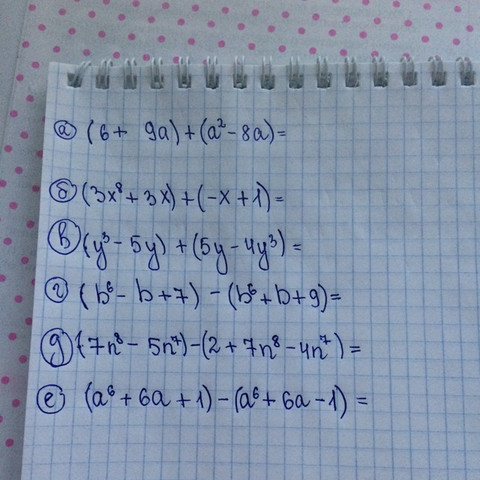 а) (6 + 9a) + (a² - 8a) =
б) (3x⁸ + 3x) + (-x + 1) =
в) (y³ - 5y) + (5y - 4y³) =
г) (b⁶ - b + 7) - (b⁶ + b + 9) =
д) (7n⁸ - 5n⁷) - (2 + 7n⁸ - 4n⁷) =
е) (a⁶ + 6a + 1) - (a⁶ + 6a - 1) =